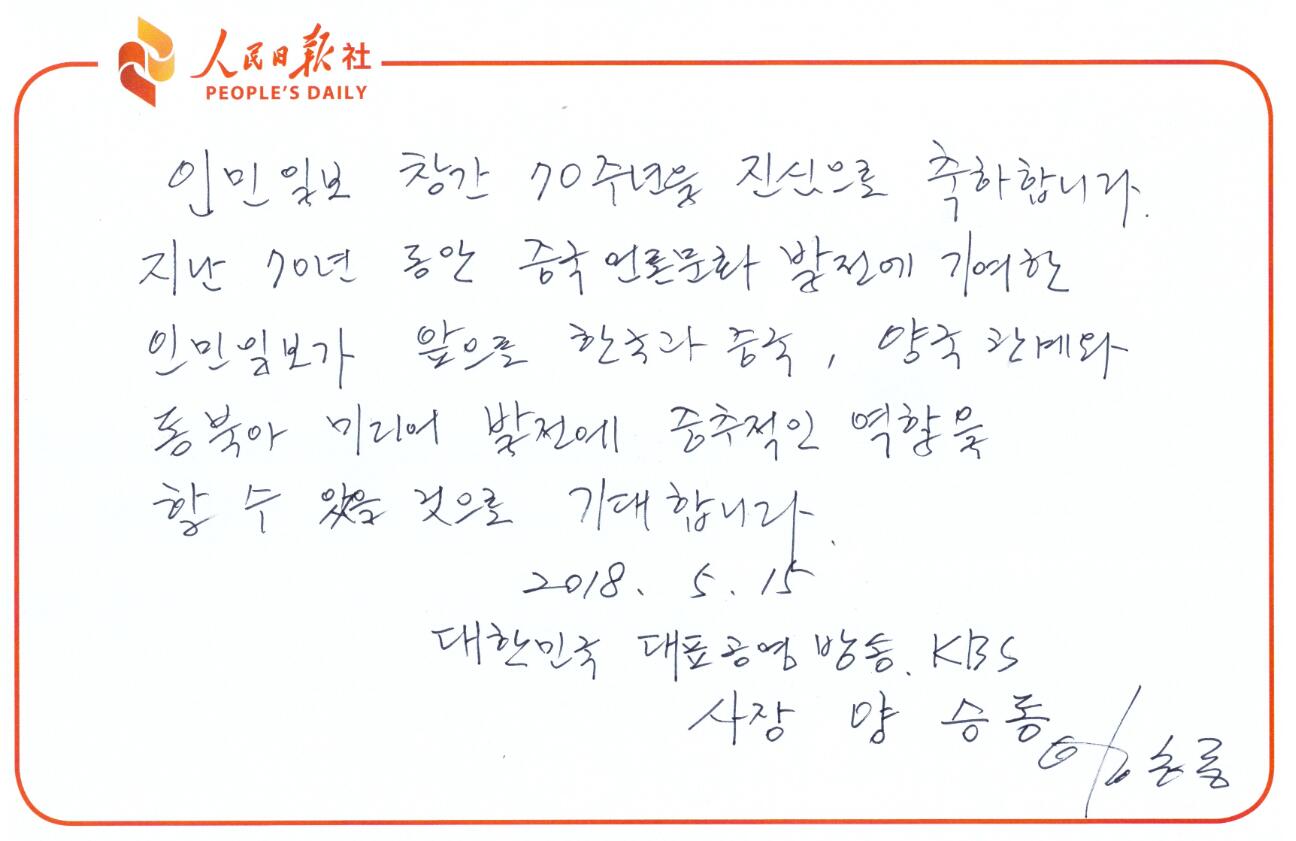 人民日报社
PEOPLE'S DAILY
인민일보 창간 70주년을 진심으로 축하합니다.
지난 70년 동안 중국 언론문화 발전에 기여한
인민일보가 앞으로 한국과 중국, 양국 관계와
동북아 미디어 발전에 중추적인 역할을
할 수 있을 것으로 기대합니다.
2018. 5. 15
대한민국 대표공영방송. KBS
사장 양 승 동